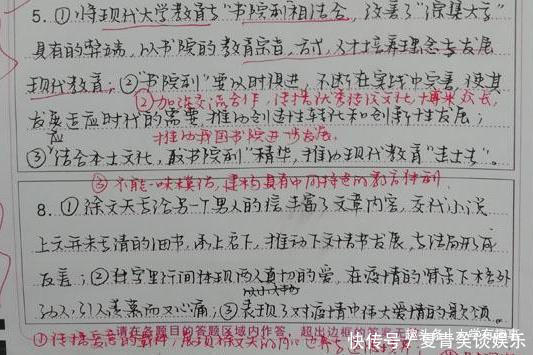 5. ①将现代大学教育与“书院制相结合，改善了“综集大学”
具有的弊端，以书院的教育宗旨、方式、对培养理念去发展
现代教育；②“书院制”要以时俱进，不断在实践中完善，使其
②加强交流合作，传承优秀传统文化，博采众长，
发展适应时代的需要，推动创造性转化和创新性发展；
应
推动我国书院进一步发展。
③“结合本土文化，取书院制”精华，推动现代教育“走出去”。
③不能一味模仿，建构具有中国特色的教育体制。
8. ①徐文天写给另一个男人的信丰富了文章内容，交代小说
上文并未写清的细节，承上启下，推动下文情节发展，与结局形成
反差；②且字里行间体现两人真切的爱，在疫情的背景下格外
动人，引人羡慕而又心痛；③表现了对疫情中伟大爱情的歌颂。
请在各题目的答题区域内作答，超出边框的答案无效
头条 @大学有趣事
快传号/爱青笑谈娱乐